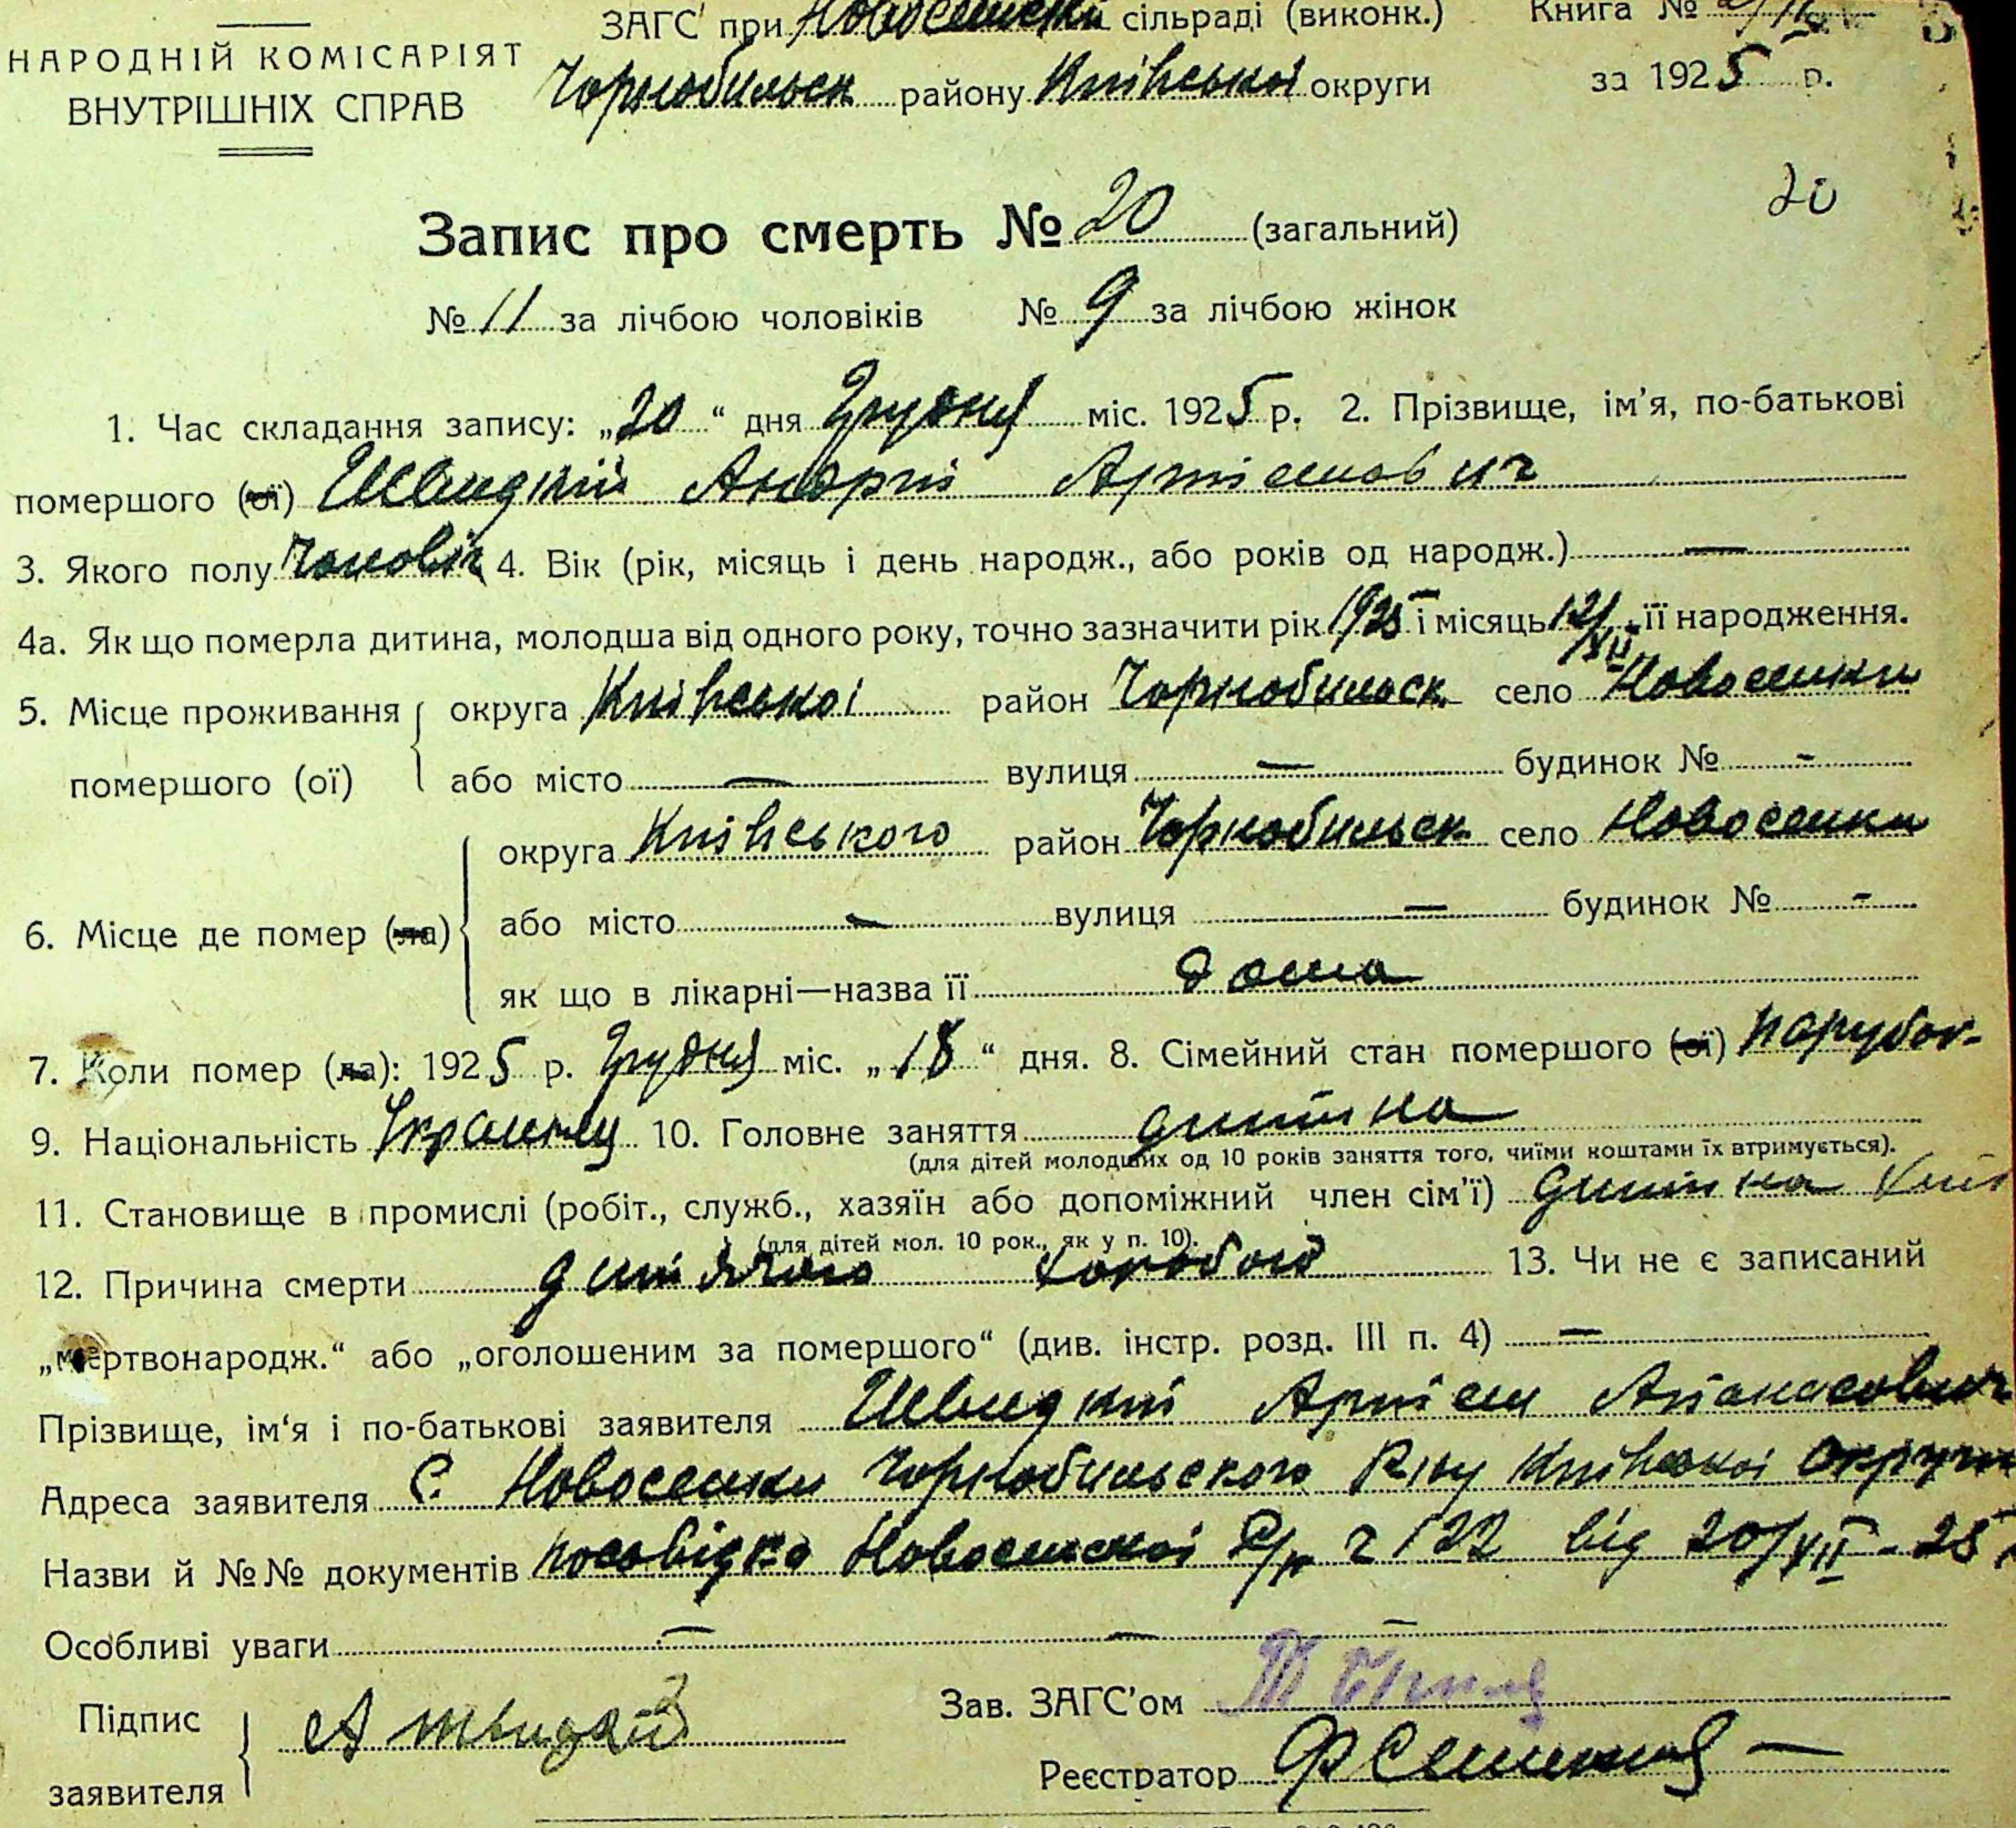 ЗАГС при Новосельській сільраді (виконк.) Книга №
НАРОДНІЙ КОМІСАРІЯТ
ВНУТРІШНІХ СПРАВ
Чорнобильск району Київської округи за 1925 р.
20
Запис про смерть № 20 (загальний)
№ 11 за лічбою чоловіків № 9 за лічбою жінок
1. Час складання запису: „20“ дня Грудня міс. 1925 р. 2. Прізвище, ім’я, по-батькові
помершого (ої) Швидкий Андрій Артіемович
3. Якого полу Чоловік 4. Вік (рік, місяць і день народж., або років од народж.) —
4а. Як що померла дитина, молодша від одного року, точно зазначити рік 1925 і місяць 12/XII її народження.
5. Місце проживання округа Київської район Чорнобильск село Новоселки
помершого (ої) або місто — вулиця — будинок № -
округа Київського район Чорнобильск село Новоселки
6. Місце де помер (ла) або місто — вулиця — будинок № -
як що в лікарні—назва її дома
7. Коли помер (ла): 1925 р. Грудня міс. „18“ дня. 8. Сімейний стан помершого (ої) парубок
9. Національність Украинец 10. Головне заняття дитина
(для дітей молодших од 10 років заняття того, чиїми коштами їх втримується).
11. Становище в промислі (робіт., служб., хазяїн або допоміжний член сім’ї) дитина
(для дітей мол. 10 рок., як у п. 10).
12. Причина смерти дитячою хоробою 13. Чи не є записаний
„мертвонародж.“ або „оголошеним за помершого“ (див. інстр. розд. III п. 4) —
Прізвище, ім‘я і по-батькові заявителя Швидкий Артіем Апанасович
Адреса заявителя С. Новоселки Чорнобильского Р-ну Київської округи
Назви й №№ документів посвідка Новоселської С/р ч 122 від 20/XII-25
Особливі уваги — — —
Підпис заявителя А Швидкий Зав. ЗАГС’ом
Реєстратор